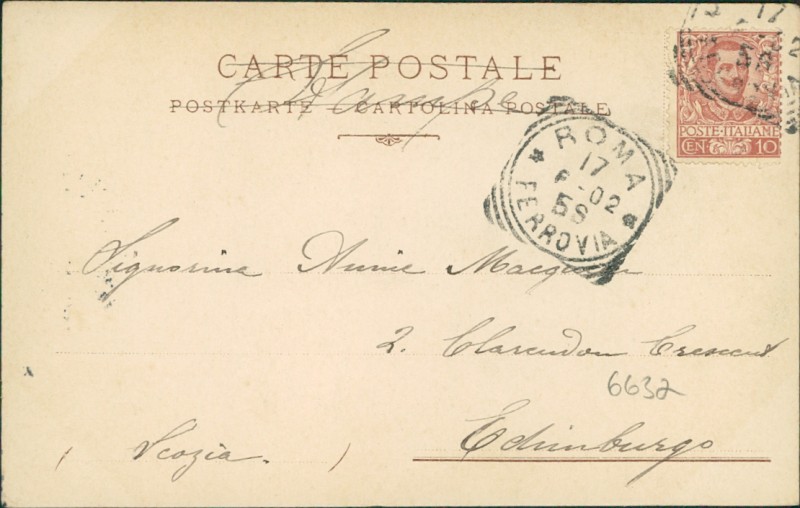 CARTE POSTALE
Stampe
POSTKARTE CARTOLINA POSTALE
POSTE·ITALIANE
CEN 10
ROMA
17
6-02
5S
FERROVIA
Signorina Annie
2. Clarendon Crescent
6632
Edimburgo
( Scozia. )